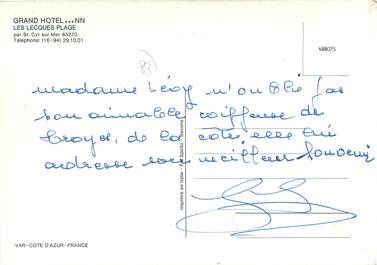 GRAND HOTEL...NN
LES LECQUES PLAGE
par St. Cyr sur Mer 83270
Téléphone: (16-94) 29.10.01
83)
488075
madame Lévy n'oublie pas
son aimable coiffeuse de
troyes, de la cote elle lui
adresse son meilleur souvenir
VAR - COTE D'AZUR - FRANCE